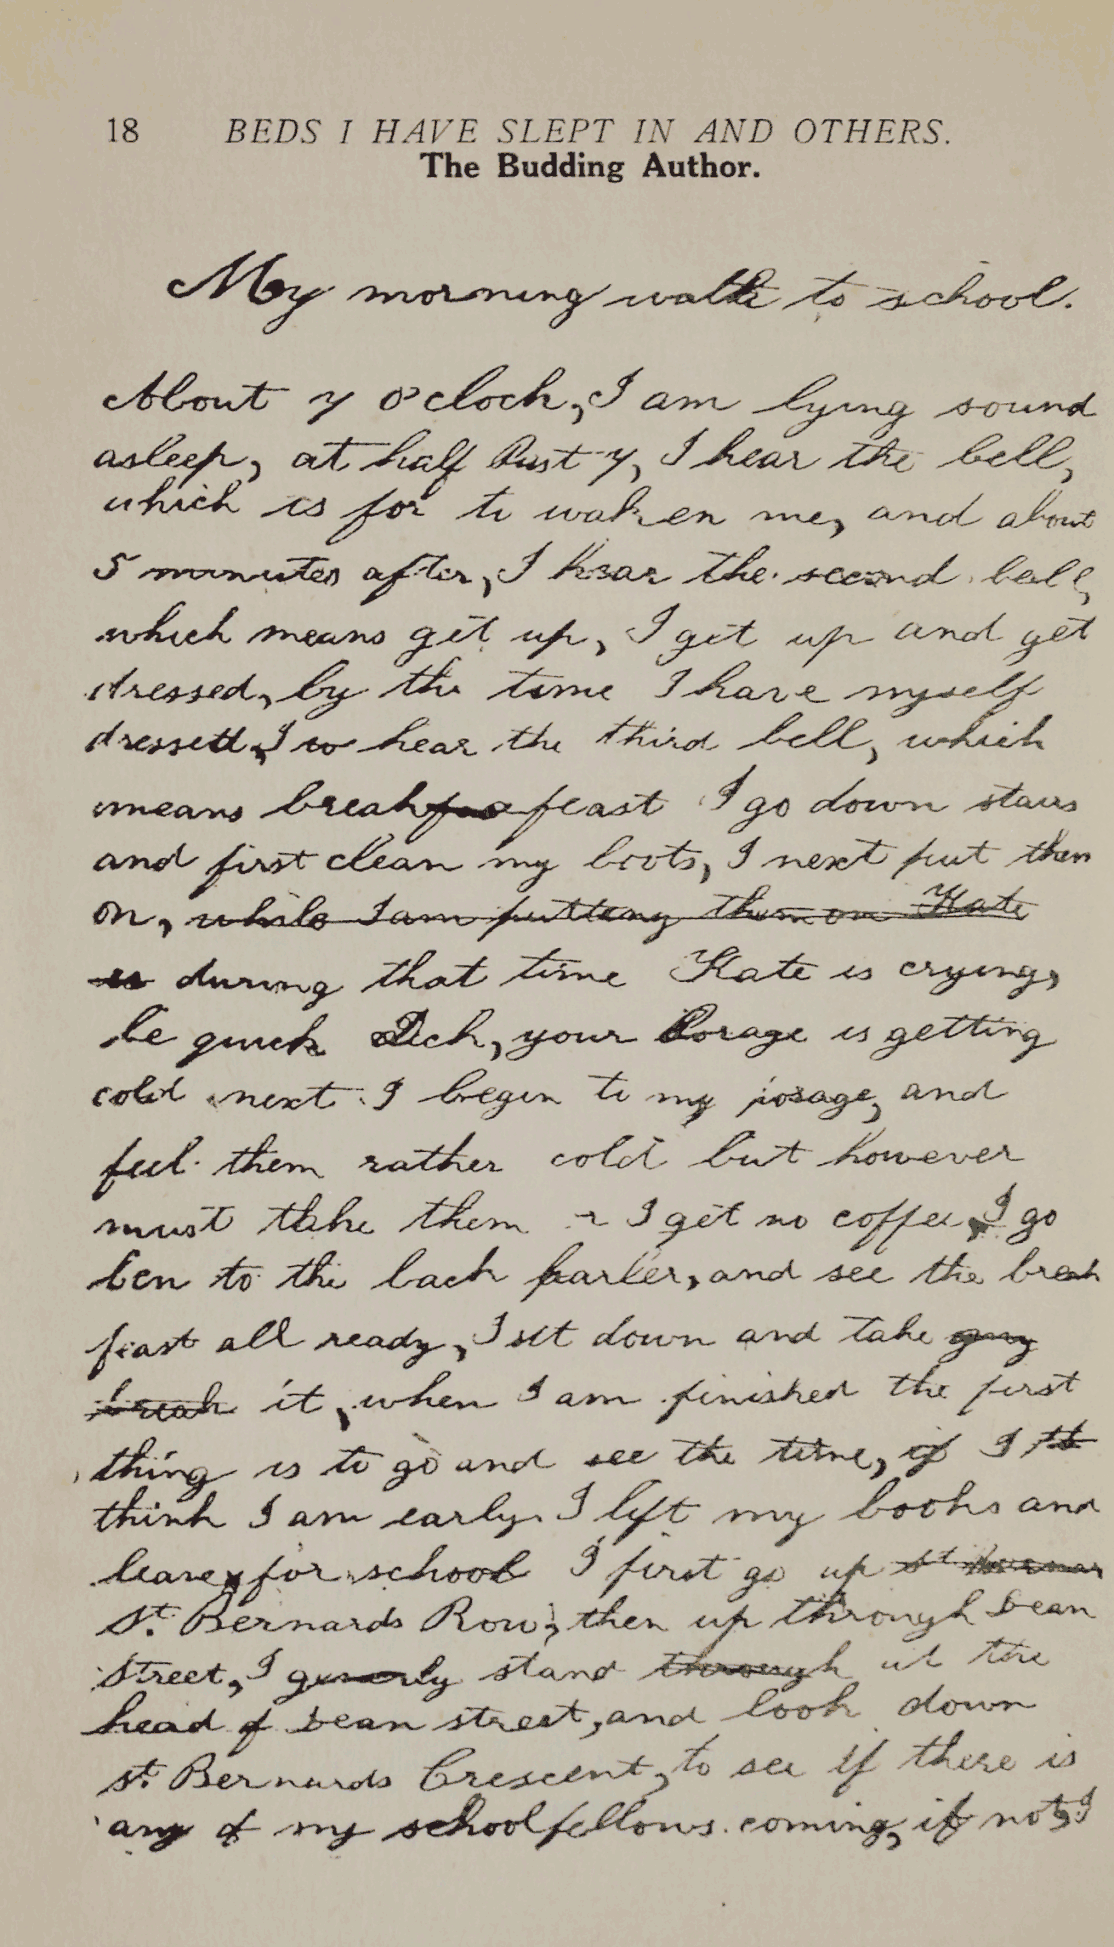 18 BEDS I HAVE SLEPT IN AND OTHERS.
The Budding Author.
My morning walk to school.
About 7 o'clock, I am lying sound
asleep, at half Past 7, I hear the bell,
which is for to waken me, and about
5 minutes after, I hear the second bell,
which means get up, I get up and get
dressed, by the time I have myself
dressed, I hear the third bell, which
means breakfeast I go down stairs
and first clean my boots, I next put them
on, while I am putting them on Kate
is during that time Kate is crying,
be quick Dick, your Porage is getting
cold next I begin to my porage, and
feel them rather cold but however
must take them I get no coffee, I go
ben to the back parler, and see the break
feast all ready, I sit down and take my
break it, when I am finished the first
thing is to go and see the time, if I th
think I am early I lift my books and
leave for school I first go up St
St. Bernards Row, then up through Dean
Street, I generly stand through at the
head of Dean street, and look down
St. Bernards Crescent, to see if there is
any of my schoolfellows coming, if not, I